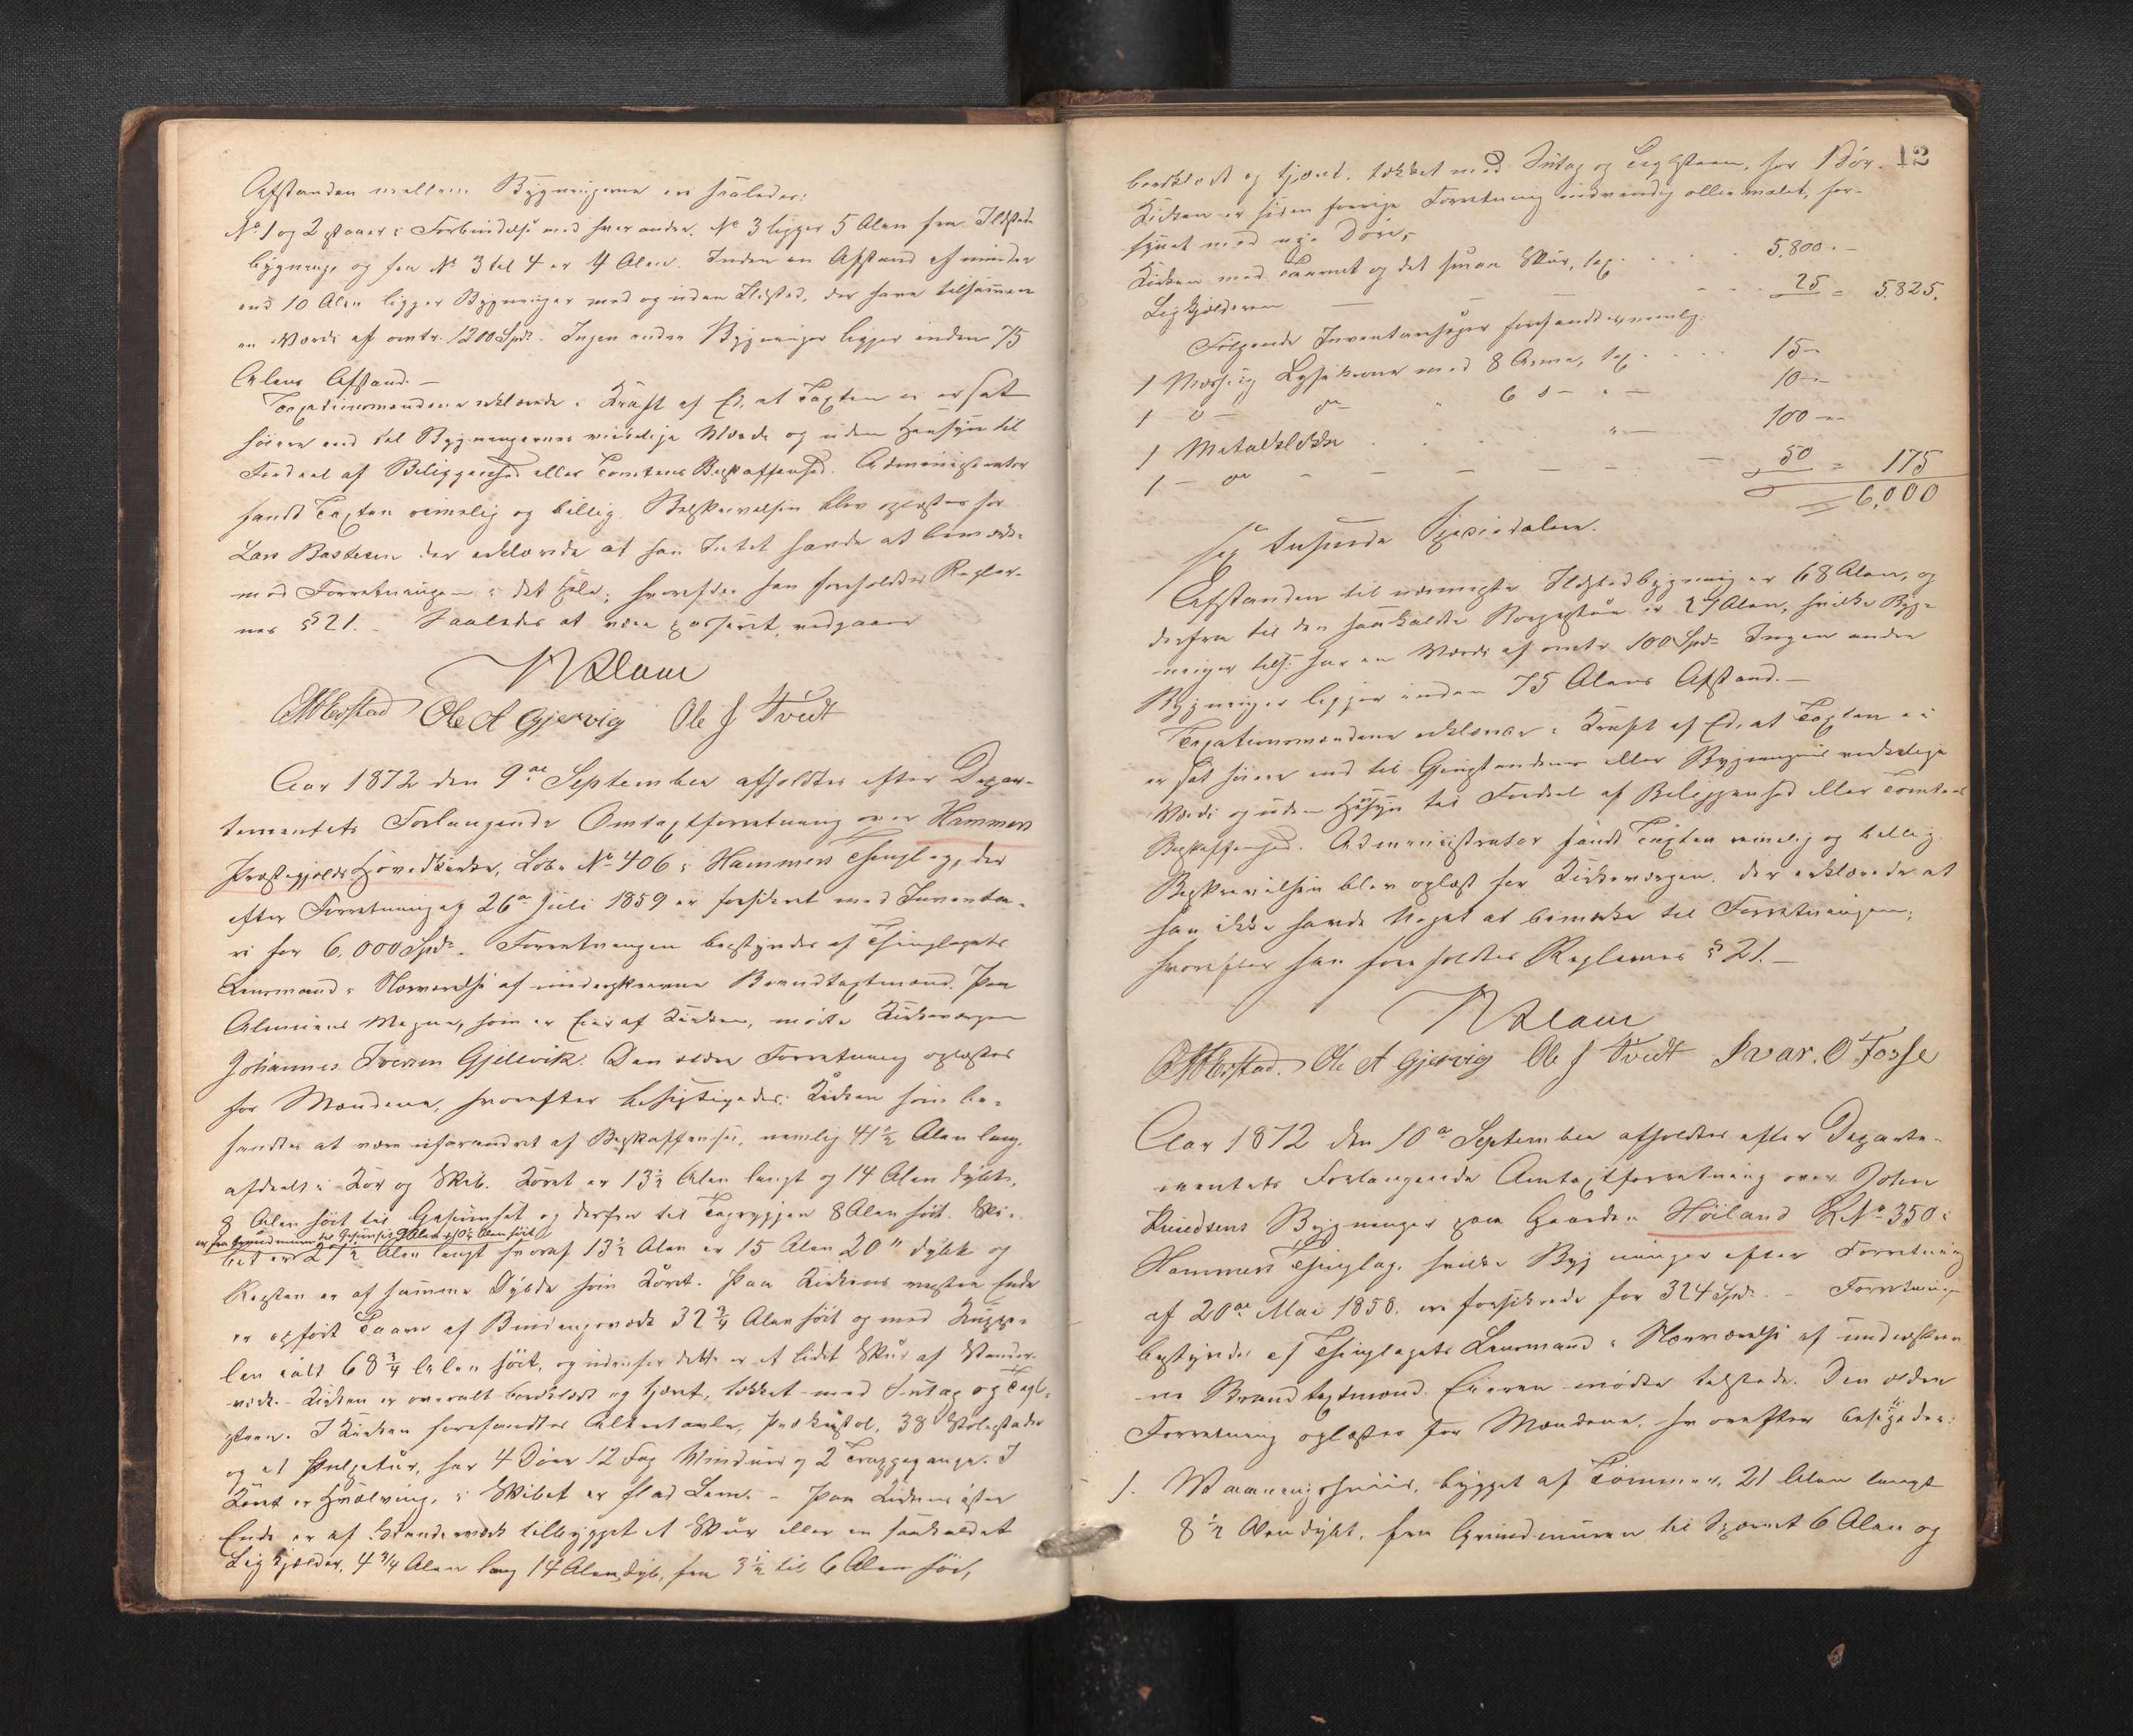 Afstanden mellem Bygningerne er saaledes:
No 1 og 2 staaer i Forbindelse med hver andre. No 3 ligger 5 Alen fra Ildsteds
bygninge og fra No 3 til 4 er 4 Alen. Inden en Afstand af mindre
end 10 Alen ligger Bygninger med og uden Ildsted, der have tilsammen
en Værdi af omtr. 1200 Spd. Ingen andre Bygninger ligger inden 75
Alens Afstand. –
Taxationsmændene erklærede i Kraft af Ed, at Taxten ei er sat
høiere end til Bygningernes virkelige Værdi og uden Hensyn til
Fordeel af Beliggenhed eller Tomtens Beskaffenhed. Administrator
fandt Taxten rimelig og billig. Beskrivelsen blev oplæst for
Lars Bastesen der erklærede at han Intet havde at bemærke
mod Forretningen i det Hele; hvorefter han foreholdtes Regler-
nes § 21. – Saaledes at være passeret, vedgaaes
N Dam
Ole A Gjervig Ole J Tveit
Aar 1872 den 9de September afholdtes efter Depar-
tementets Forlangende Omtaxtforretning over Hammers
Præstegjelds Hovedkirke, Løbe No 406 i Hammers Thinglag, der
efter Forretning af 26de Juli 1859 er forsikret med Inventa-
ri for 6,000 Spd. Forretningen bestyredes af Thinglagets
Lensmand i Nærværelse af underskrevne Brandtaxtmænd. Paa
Almuens Vegne, som er Eier af Kirken, mødte Kirkeværgen
Johannes Iversen Gjellvik. Den ældre Forretning oplæstes
for Mændene, hvorefter besigtigedes: Kirken som be-
fandtes at være uforandret af Beskaffenhed, nemlig 41 1/2 Alen lang,
afdeelt i Kor og Skib. Koret er 13 1/2 Alen langt og 14 Alen dybt,
8 Alen høit til Gesimset og derfra til Tagryggen 8 Alen høit. Ski-
er fra Grundmuren til Gesimset 9 Alen + 10 1/2 Alen høit
bet er 27 1/2 Alen langt hvoraf 13 1/2 Alen er 15 Alen 20" dybt og
Resten er af samme Dybde som Koret. Paa Kirkens vestre Ende
er opført Taarn af Bindingsværk 32 3/4 Alen høit og med Kuppe-
len ialt 68 3/4 Alen høit, og udenfor dette er et lidet Skur af Stander-
værk. – Kirken er overalt bordklædt og tjæret, tækket med Sutag og Tagl-
steen. I Kirken forefandtes Altertavle, Prækestol, 38 Stolestader
og et Pulpetur, har 4 Døre 12 Fag Vinduer og 2 Trappegange. I
Koret er Hvælving, i Skibet er flad Lem. – Paa Kirkens østre
Ende er af Standerværk tilbygget et Skur eller en saakaldet
Ligkjelder, 4 3/4 Alen lang 14 Alen dyb, fra 3 1/2 til 6 Alen høi,
12
bordklædt og tjæret, tækket med Sutag og Taglsteen, har 1 Dør.
Kirken er siden forrige Forretning indvendig oliemalet, for-
synet med nye Døre,
Kirken med Taarnet og det smaa Skur, tax. . . . 5,800. –
Ligkjelderen – – – . . . 25 = 5825.
Følgende Inventarsager forefandtes, nemlig:
1 Messing Lysekrone med 8 Arme, tax. . . . 15 –
1 do – do – " 6 do – " – 10 –
1 Metalklokke . . . " – 100 –
1 – do – – – – – 50 = 175
6,000
sex tusinde Speciedaler.
Afstanden til nærmeste Ildstedbygning er 68 Alen, og
derfra til den saakaldte Borgestue er 27 Alen, hvilke Byg-
ninger tils: har en Værdi af omtr 100 Spd. Ingen andre
Bygninger ligger inden 75 Alens Afstand. –
Taxationsmændene erklærede i Kraft af Ed, at Taxten ei
er sat høiere end til Gjenstandens eller Bygningens virkelige
Værdi og uden Hensyn til Fordeel af Beliggenhed eller Tomtens
Beskaffenhed. Administrator fandt Taxten rimelig og billig.
Beskrivelsen blev oplæst for Kirkeværgen, der erklærede at
han ikke havde Noget at bemærke til Forretningen;
hvorefter han foreholdtes Reglernes § 21. –
N Dam
Ole A Gjervig Ole J Tveit Ivar. O Fosse
Aar 1872 den 10de September afholdtes efter Departe-
mentets Forlangende Omtaxtforretning over John
Knudsens Bygninger paa Gaarden Høiland LNo 350 i
Hammers Thinglag, hvilke Bygninger efter Forretning
af 20de Mai 1858. ere forsikrede for 324 Spd. – Forretningen
bestyredes af Thinglagets Lensmand i Nærværelse af underskrev-
ne Brandtaxtmænd. Eieren mødte tilstede. Den ældre
Forretning oplæstes for Mændene, hvorefter besigtigedes:
1. Vaaningshuus, bygget af Tømmer, 21 Alen langt
8 1/2 Alen dybt, fra Grundmuren til Sperret 6 Alen og